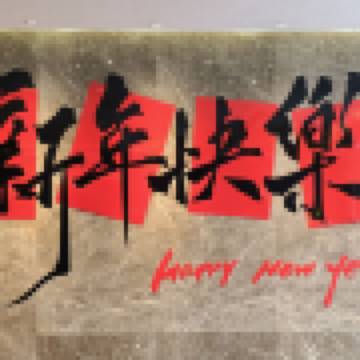 新年快樂
happy new ye